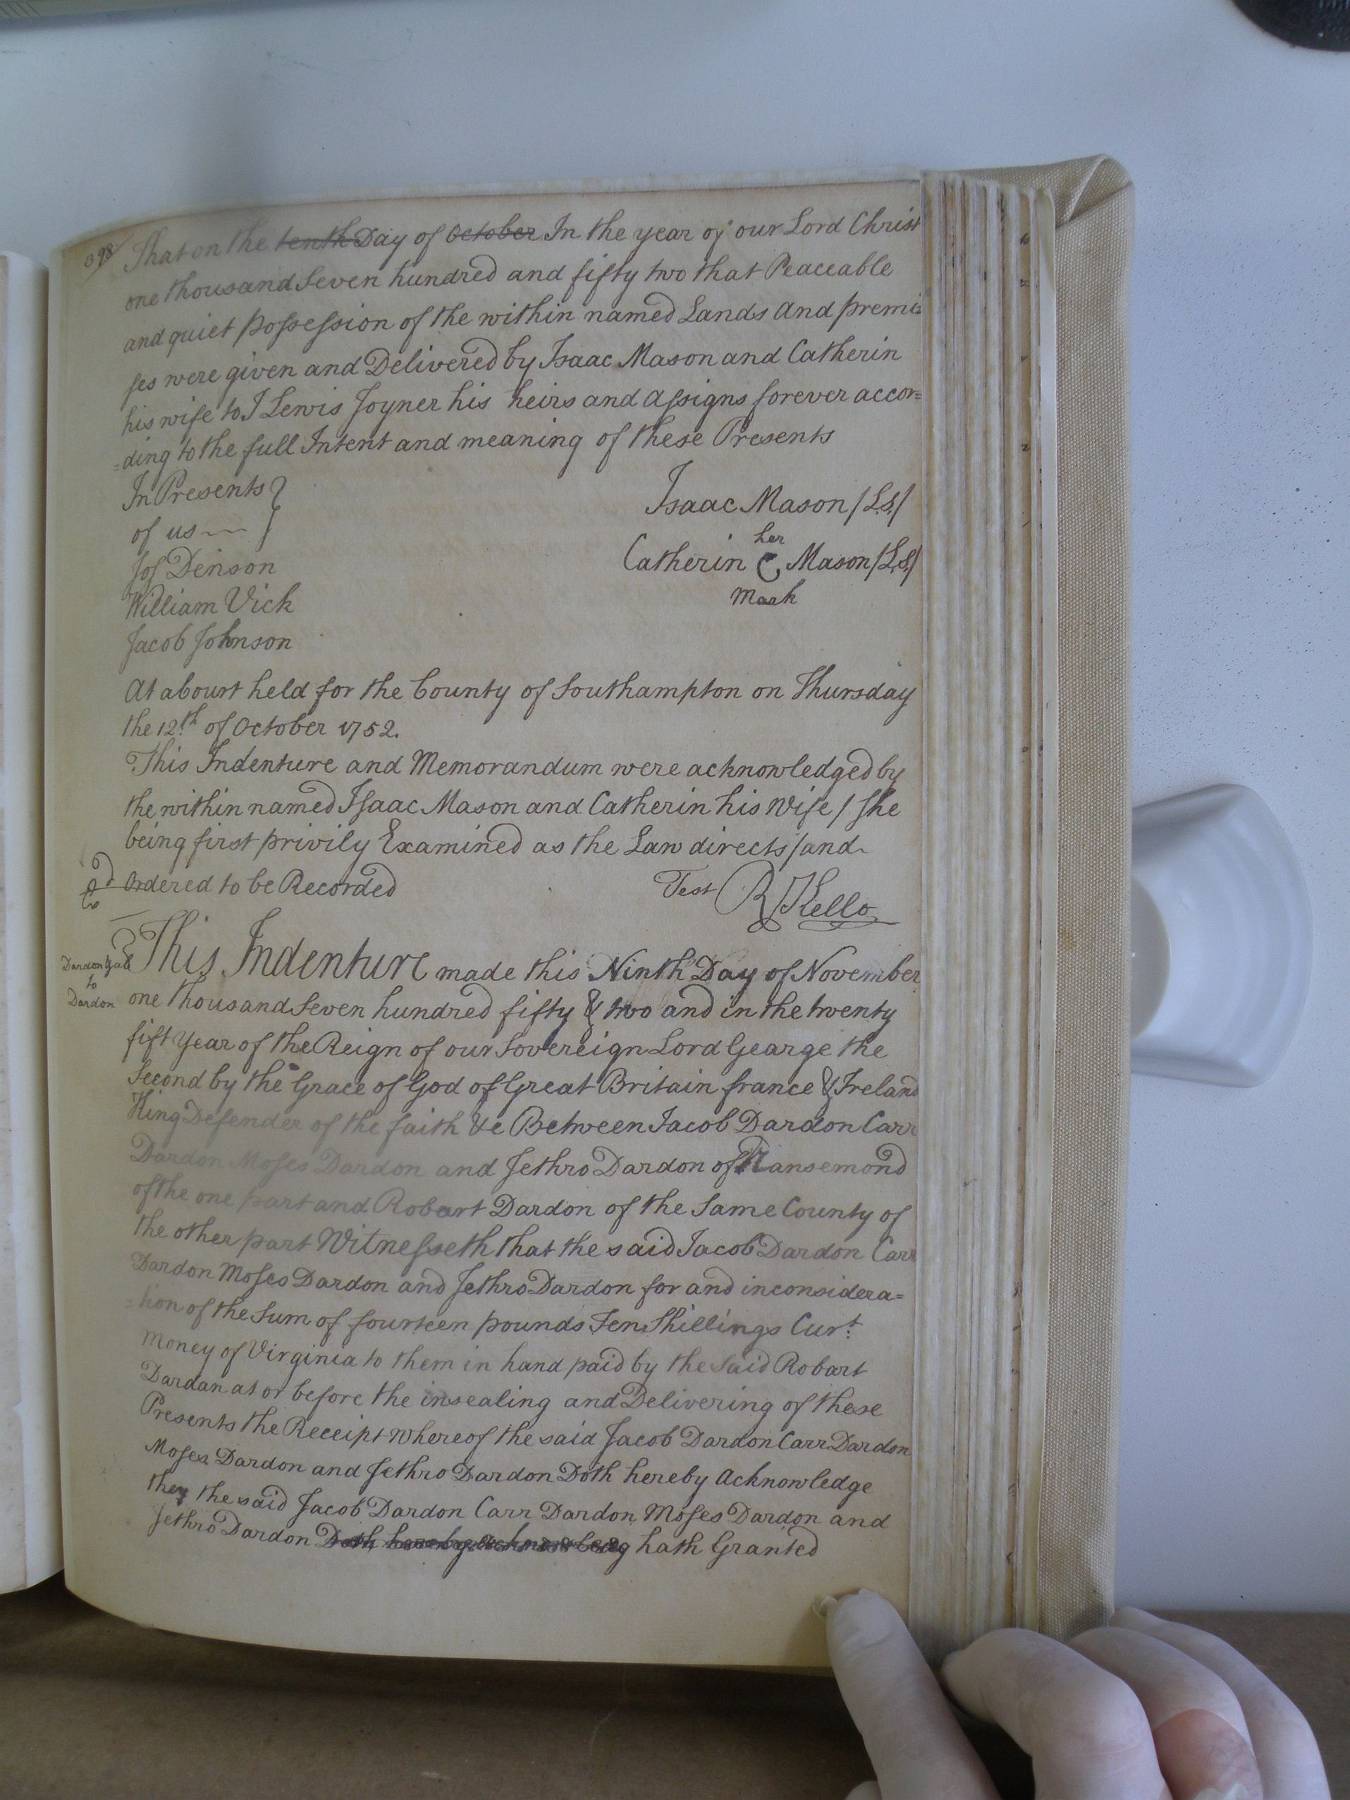 398
That on the tenth Day of October In the year of our Lord Christ
one thousand Seven hundred and fifty two that Peaceable
and quiet possession of the within named Lands and premi
ses were given and Delivered by Isaac Mason and Catherin
his wife to J Lewis Joyner his heirs and assigns forever accor=
=ding to the full Intent and meaning of these Presents
In Presents
of us
Isaac Mason /L.S./
her
Catherin C Mason /L.S./
Mark
Jos Denson
William Vick
Jacob Johnson
At a Court held for the County of Southampton on Thursday
the 12th of October 1752.
This Indenture and Memorandum were acknowledged by
the within named Isaac Mason and Catherin his Wife / She
being first privily Examined as the Law directs / and
Ordered to be Recorded
Test R Kello
Dardon &als
to
Dardon
This Indenture made this Ninth Day of November
one thousand Seven hundred fifty & two and in the twenty
fift Year of the Reign of our Sovereign Lord Gearge the
Second by the Grace of God of Great Britain france & Ireland
King Defender of the faith &c Between Jacob Dardon Carr
Dardon Moses Dardon and Jethro Dardon of Nansemond
of the one part and Robart Dardon of the Same County of
the other part Witnesseth that the said Jacob Dardon Carr
Dardon Moses Dardon and Jethro Dardon for and in considera=
=tion of the Sum of fourteen pounds Ten Shillings Curt
Money of Virginia to them in hand paid by the Said Robart
Dardan at or before the insealing and Delivering of these
Presents the Receipt whereof the said Jacob Dardon Carr Dardon
Moses Dardon and Jethro Dardon Doth hereby Acknowledge
they the said Jacob Dardon Carr Dardon Moses Dardon and
Jethro Dardon Doth hereby acknowledg hath Granted